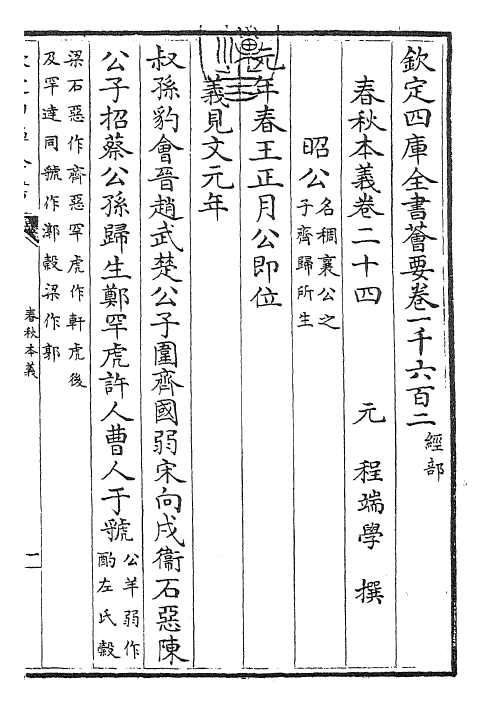 欽定四庫全書薈要卷一千六百二 經部
春秋本義卷二十四 元 程端學 撰
昭公 名稠襄公之子齊歸所生
元年春王正月公即位
義見文元年
叔孫豹會晉趙武楚公子圍齊國弱宋向戌衞石惡陳
公子招蔡公孫歸生鄭罕虎許人曹人于虢 公羊弱作酌左氏榖
梁石惡作齊惡罕虎作軒虎後
及罕達同虢作漷榖梁作郭
春秋本義
一